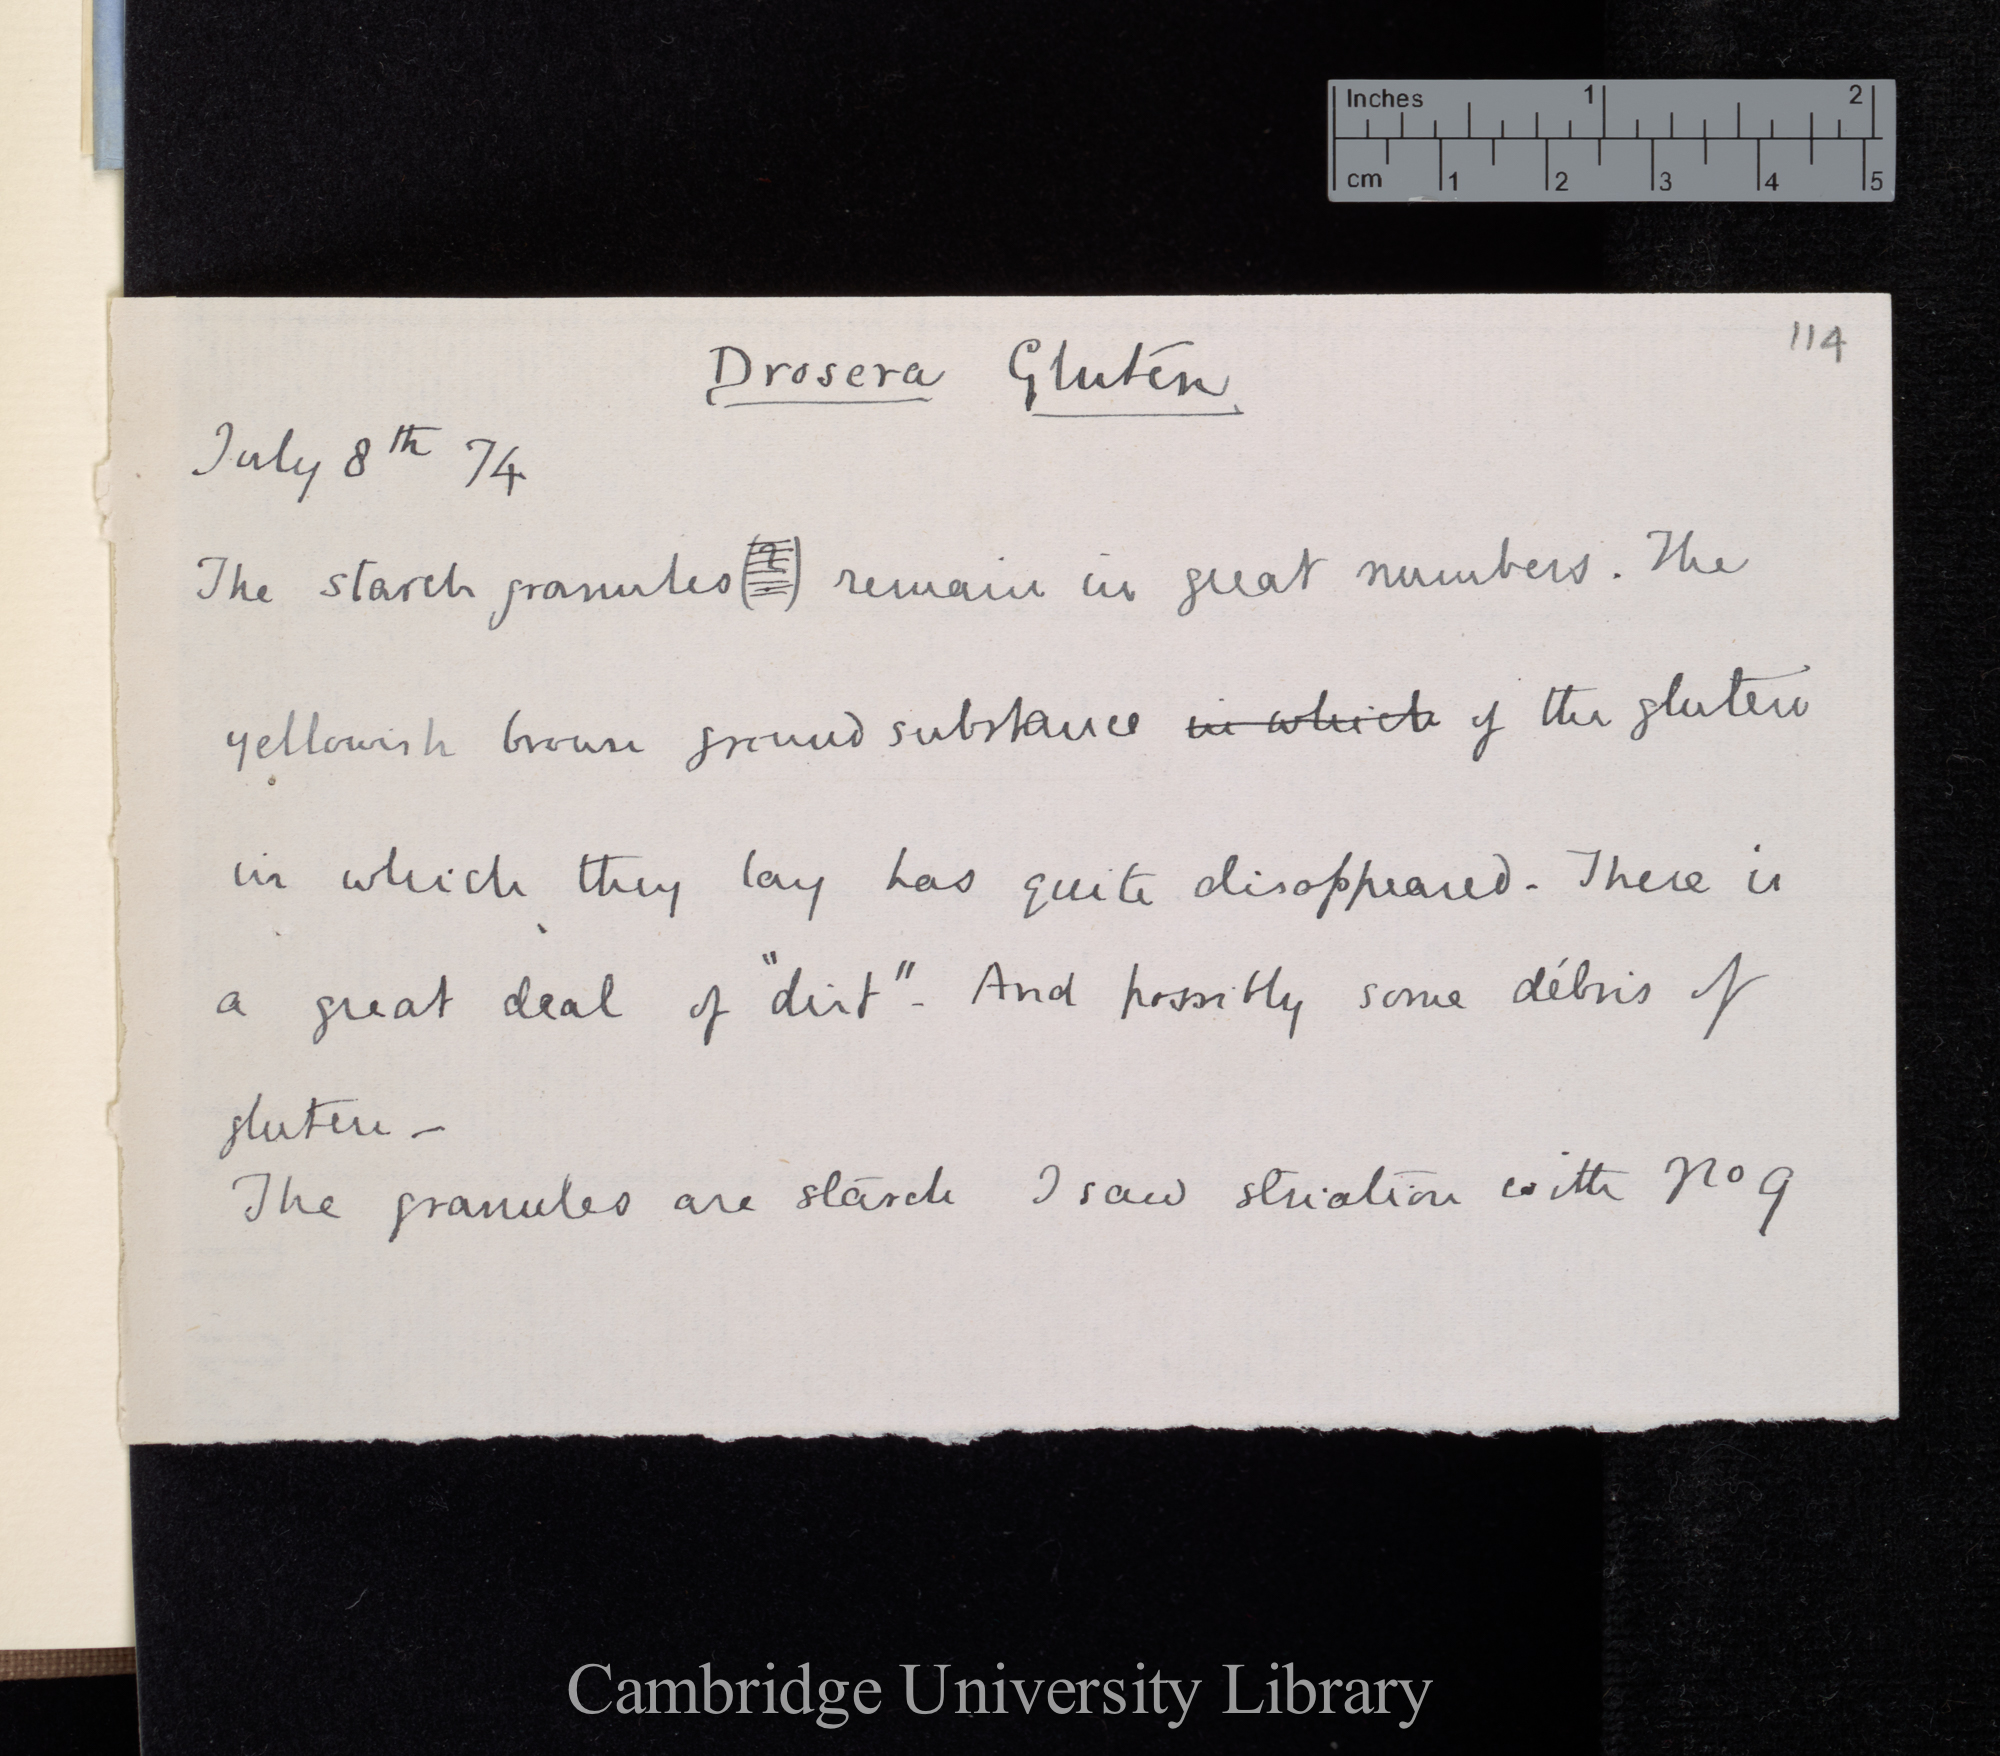 Inches 1 2
cm 1 2 3 4 5
114
Drosera Gluten
July 8th 74
The starch granules (?) remain in great numbers. The
yellowish brown ground substance in which of the gluten
in which they lay has quite disappeared - There is
a great deal of "dirt" - And possibly some débris of
gluten -
The granules are starch I saw striation with No 9
Cambridge University Library